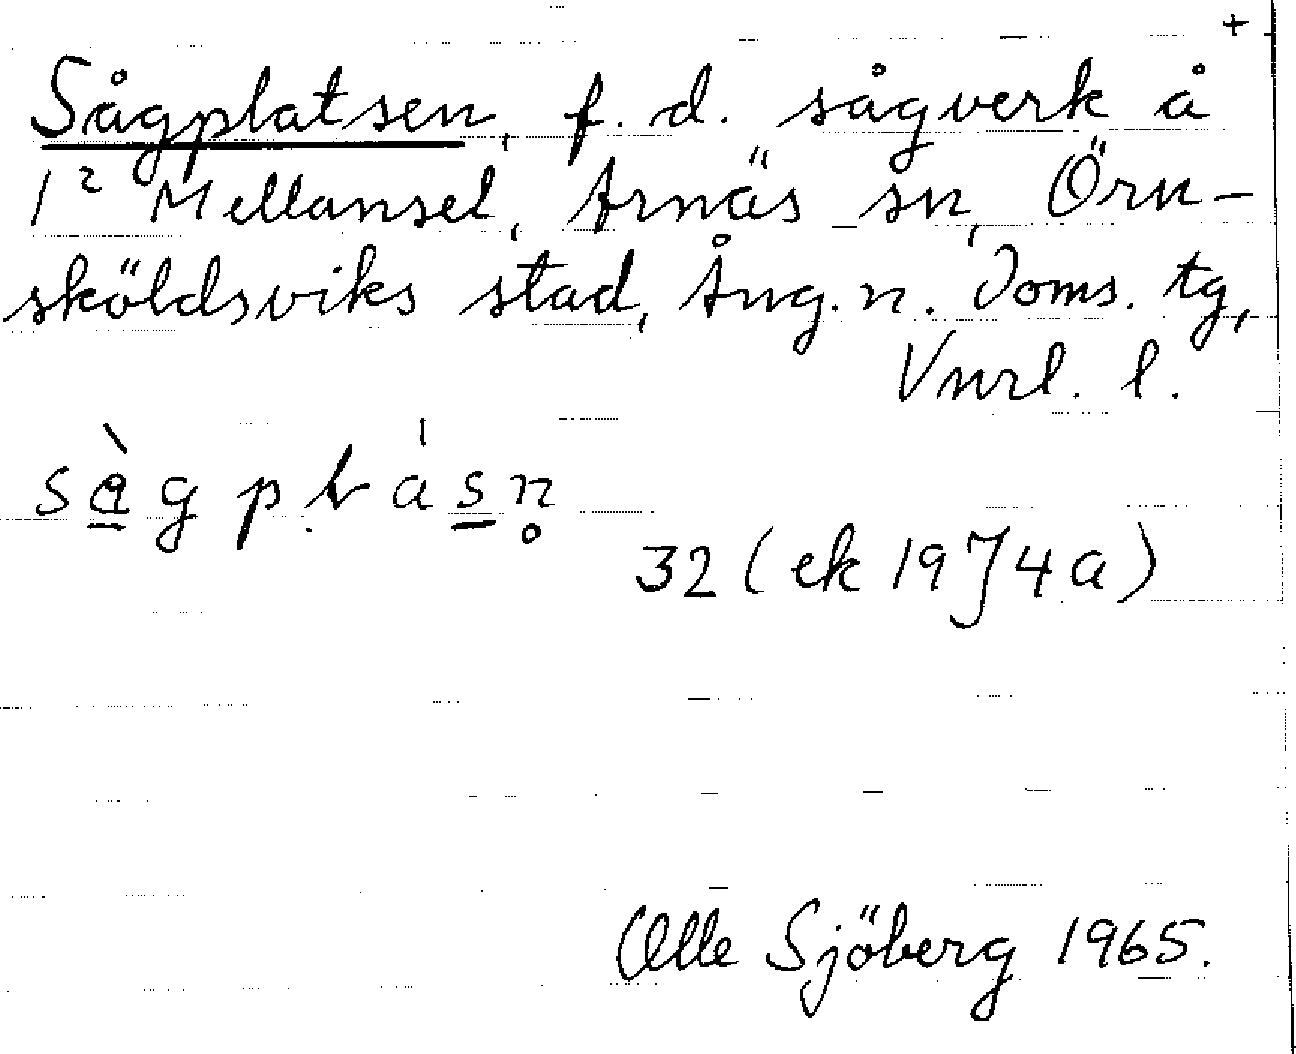 +
Sågplatsen, f.d. sågverk å
1² Mellansel, Arnäs sn, Örn-
sköldsviks stad, Ång. n. Doms. tg,
Vnrl. l.
32 (ek 19J4a)
Olle Sjöberg 1965.